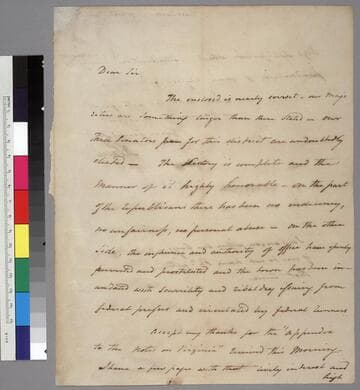 Dear Sir
The enclosed is nearly correct - our majo
rities are something larger than there stated - our
three Senators from this district are undoubtedly
elected - The victory is complete and the
Manner of it highly honorable - on the part
of the Republicans there has been no indecency,
no unfairness, no personal abuse - on the other
side, the influence and authority of office have openly
perverted and prostituted and the town has been in-
undated with scurrility and ribaldry issuing from
federal presses and circulated by federal
Accept my thanks for the "appendix
to the Notes on Virginia" received this Morning
I have a few pages with that and
high